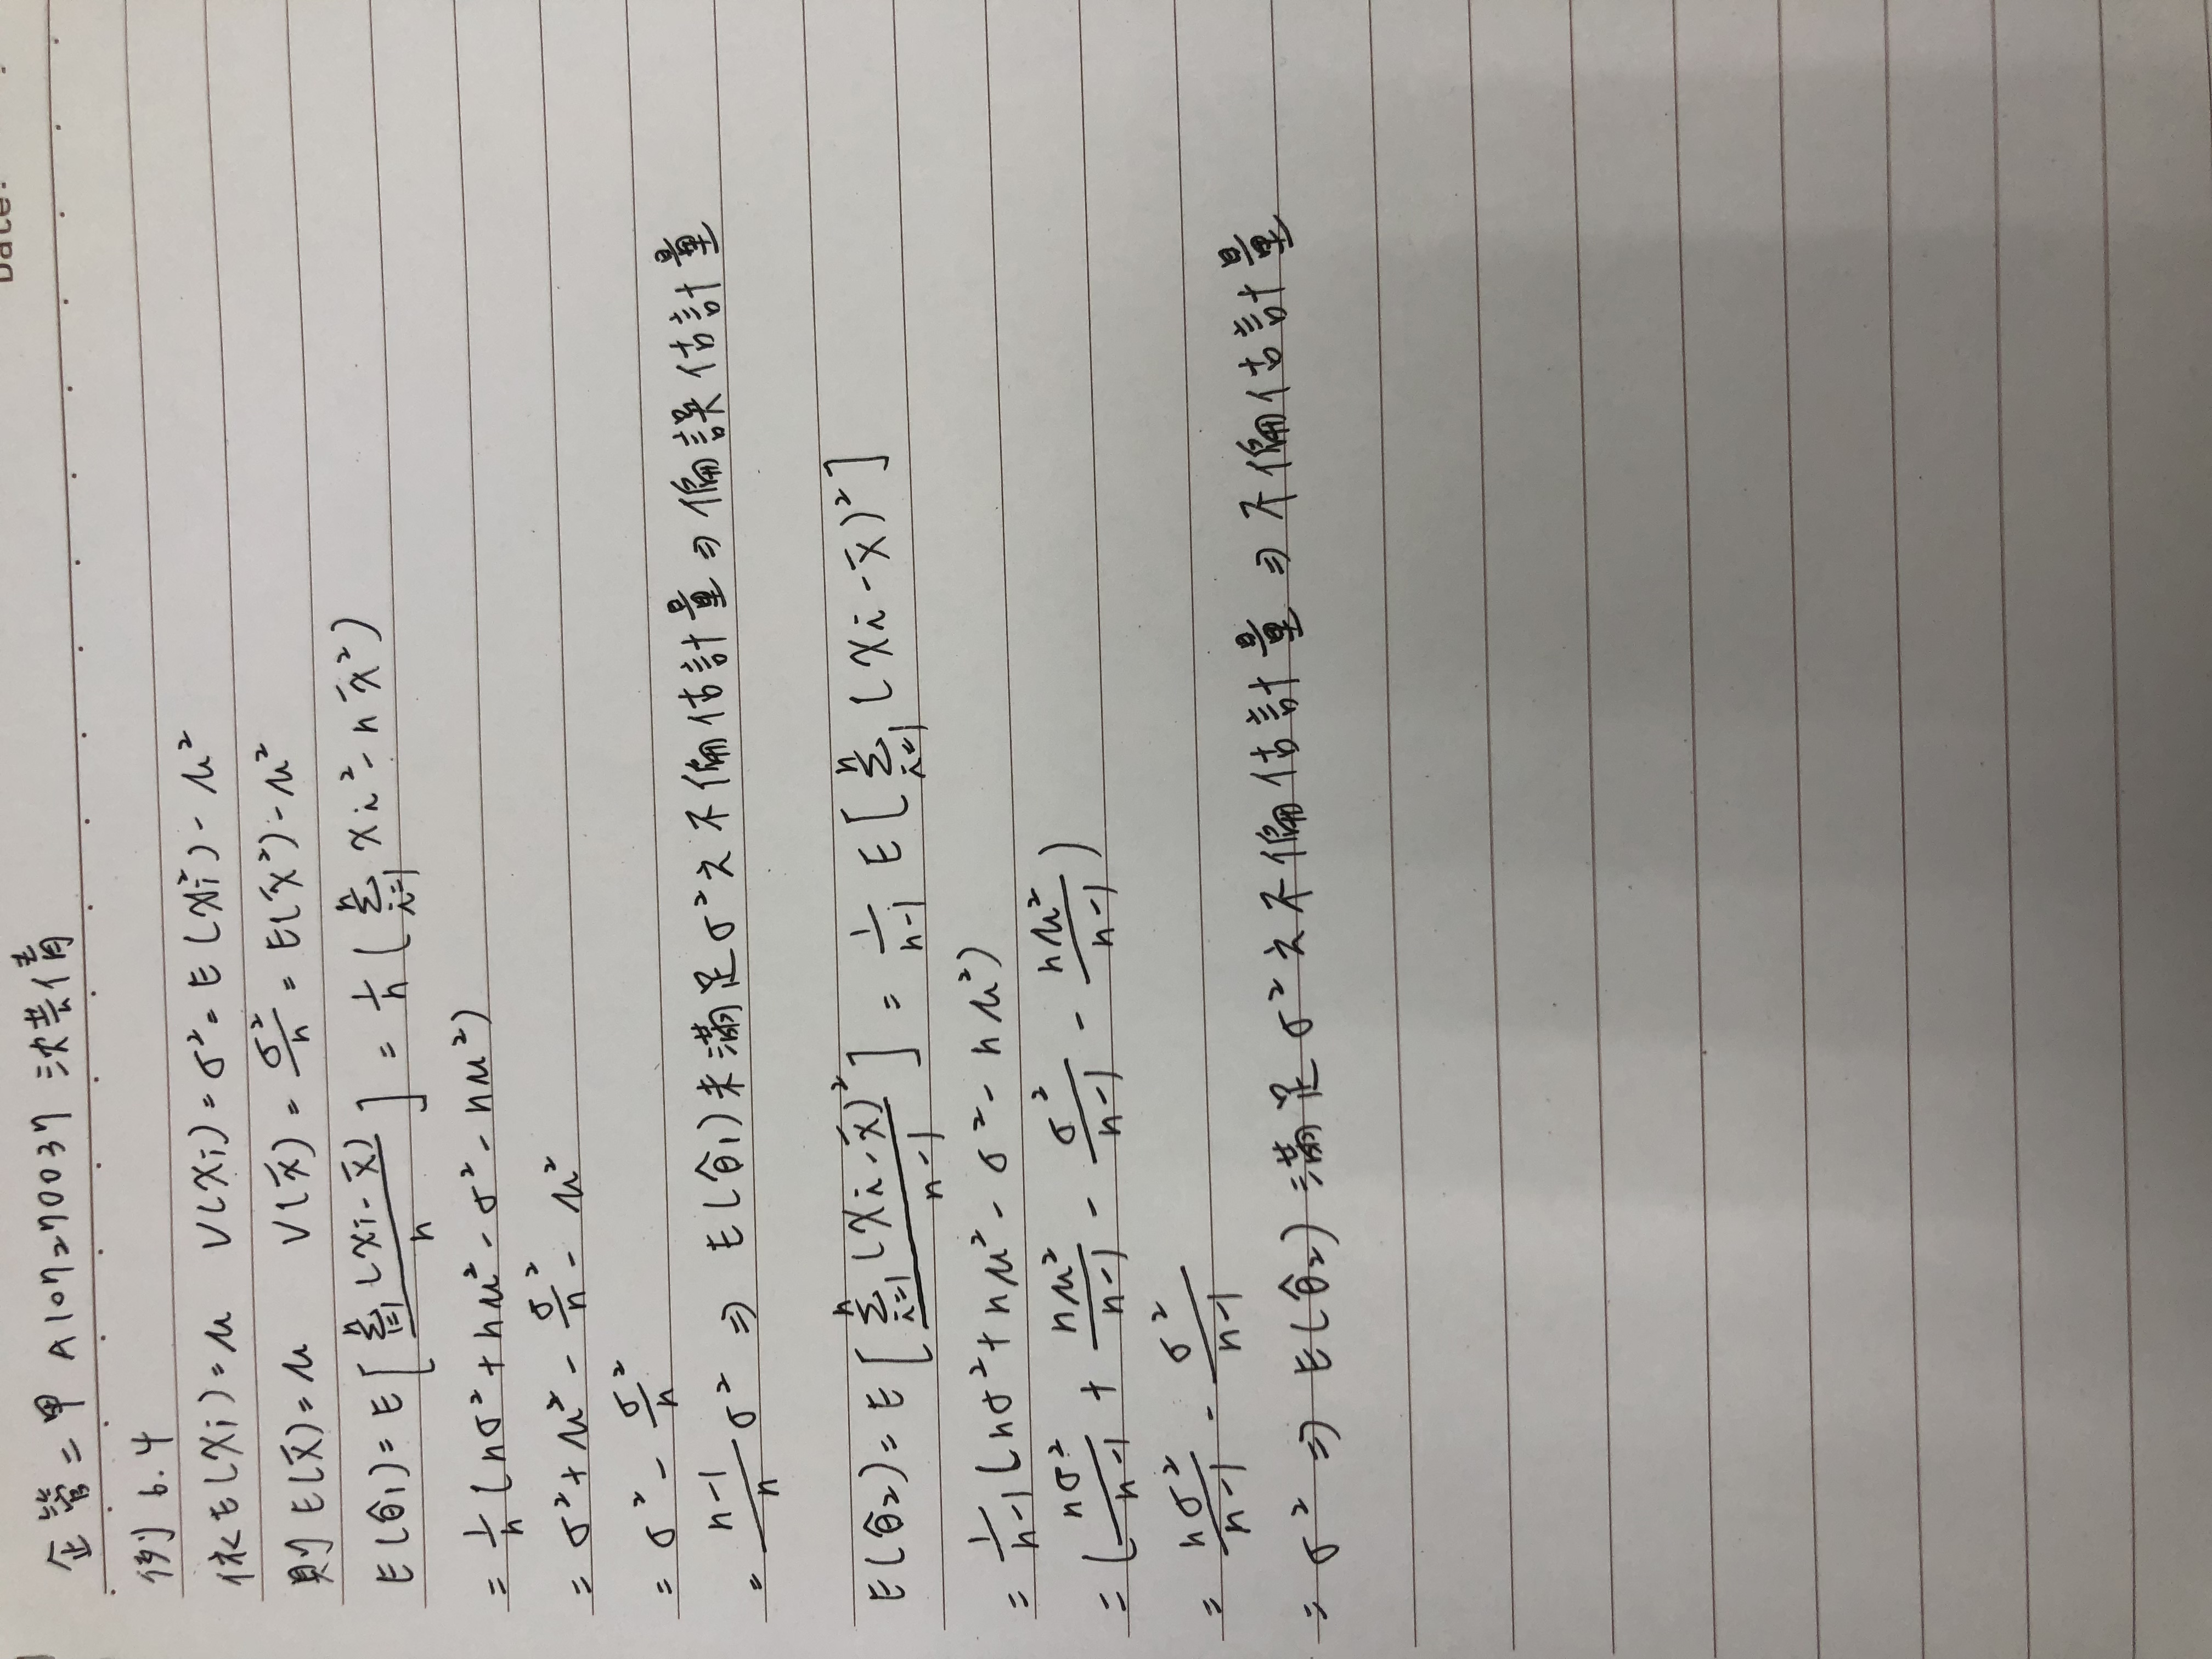 Date:
企管二甲 A107270037 沈芸倩
例 6.4
依 E(Xi)=μ V(Xi)=σ²=E(Xi²)-μ²
則 E(x̄)=μ V(x̄)=σ²/n=E(x̄²)-μ²
E(θ̂1)=E[Σ_{i=1}^{n}(Xi-x̄)/n]=1/n(Σ_{i=1}^{n}Xi²-nx̄²)
=1/n(nσ²+nμ²-σ²-nμ²)
=σ²+μ²-σ²/n-μ²
=σ²-σ²/n
=(n-1)/n σ² ⇒ E(θ̂1)未滿足σ²之不偏估計量⇒偏誤估計量
E(θ̂2)=E[Σ_{i=1}^{n}(Xi-x̄)²/(n-1)]=1/(n-1) E[Σ_{i=1}^{n}(Xi-x̄)²]
=1/(n-1)(nσ²+nμ²-σ²-nμ²)
=(nσ²/(n-1)+nμ²/(n-1)-σ²/(n-1)-nμ²/(n-1))
=nσ²/(n-1)-σ²/(n-1)
=σ² ⇒ E(θ̂2)滿足σ²之不偏估計量⇒不偏估計量